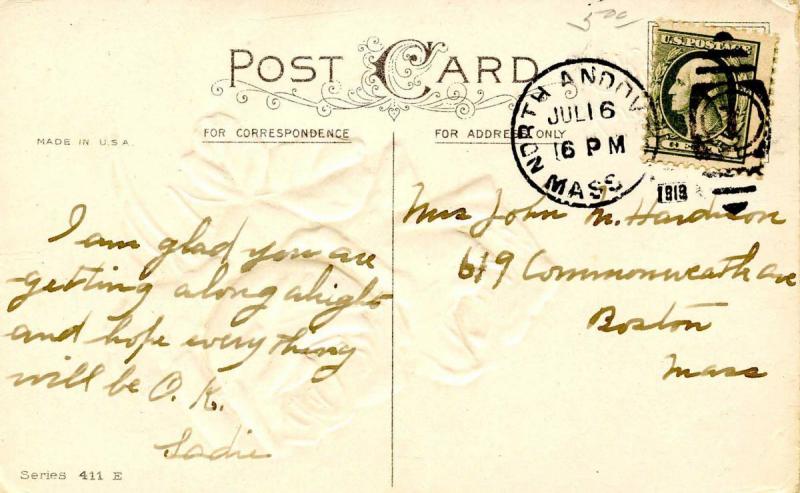 5.00
POST CARD
U.S. POSTAGE
NORTH ANDOV
JUL 16
6 PM
MASS
1913
MADE IN U.S.A.
FOR CORRESPONDENCE
FOR ADDRESS ONLY
I am glad you are
getting along alright
and hope everything
will be O.K.
Sadie
Mrs John M. Hardison
619 Commonwealth ave
Boston
Mass
Series 411 E